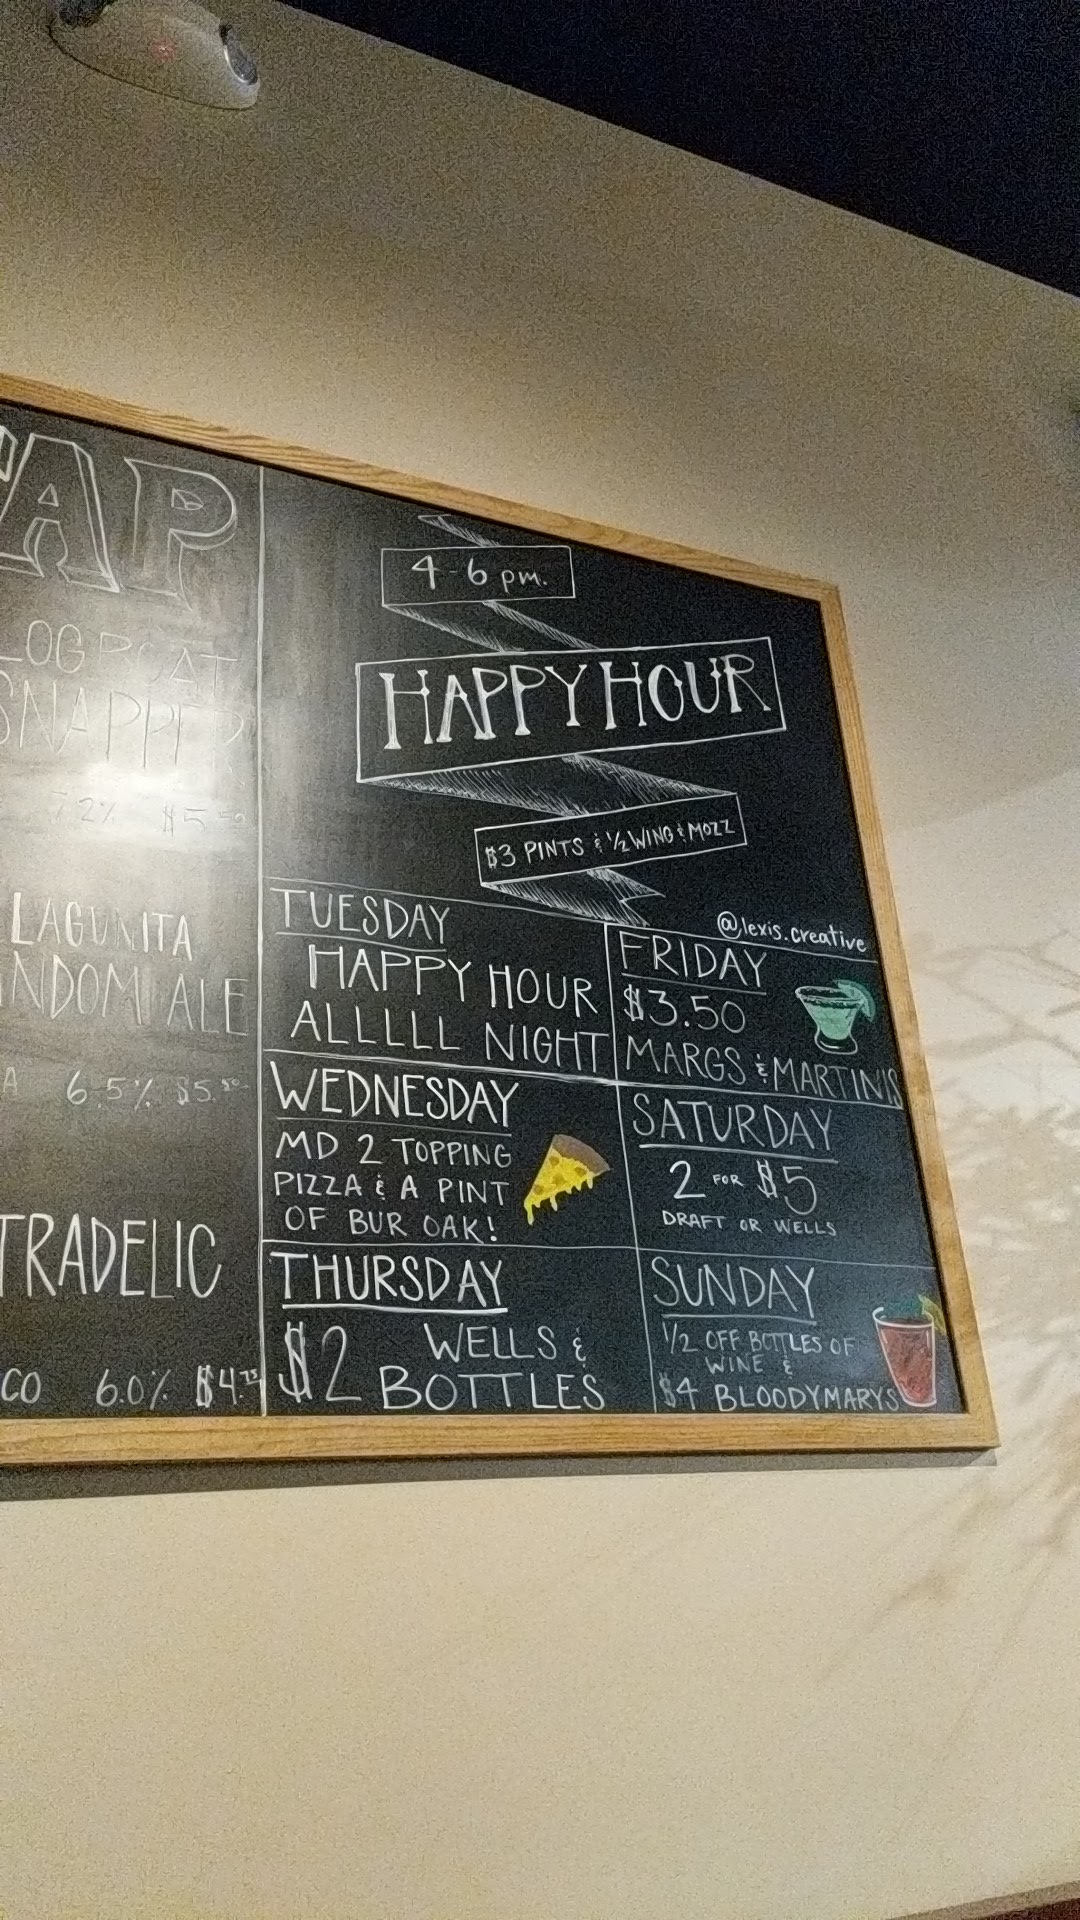 TAP
LOGBOAT
SNAPPER
7.2% $5.50
LAGUNITA
NDOM ALE
A 6.5% $5.50
TRADELIC
CO 6.0% $4.75
4-6 pm.
HAPPY HOUR
$3 PINTS & 1/2 WING & MOZZ
@lexis.creative
TUESDAY
HAPPY HOUR
ALLLLL NIGHT
WEDNESDAY
MD 2 TOPPING
PIZZA & A PINT
OF BUR OAK!
THURSDAY
$2 WELLS &
BOTTLES
FRIDAY
$3.50
MARGS & MARTINIS
SATURDAY
2 FOR $5
DRAFT OR WELLS
SUNDAY
1/2 OFF BOTTLES OF
WINE &
$4 BLOODYMARYS